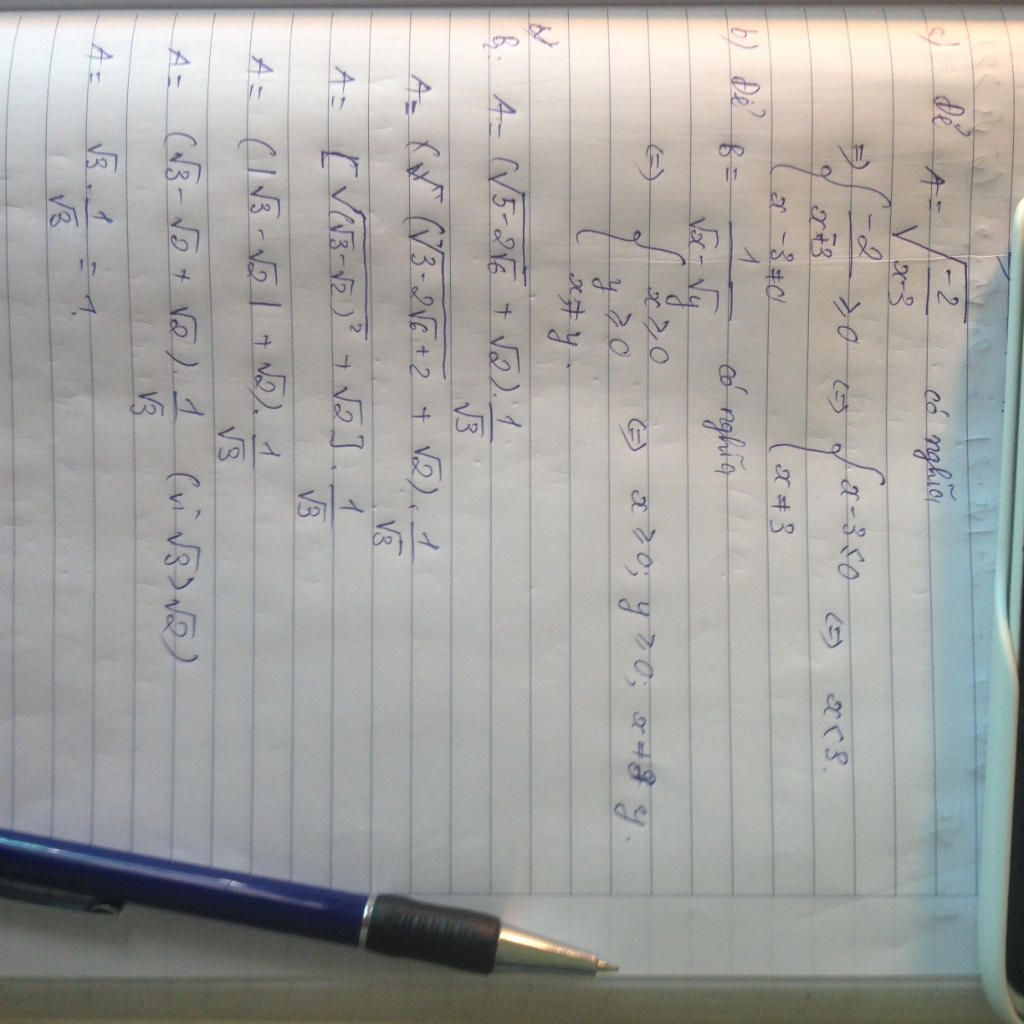 a) Để A = √(-2/x-3) có nghĩa
=> { -2/x-3 ≥ 0 <=> { x-3 < 0 <=> x < 3.
x - 3 ≠ 0 x ≠ 3
b) Để B = 1/(√x - √y) có nghĩa
<=> { x ≥ 0 <=> x ≥ 0; y ≥ 0; x ≠ y.
y ≥ 0
x ≠ y.
A = (√(5-2√6) + √2). 1/√3
A = (√(3-2√6+2) + √2). 1/√3
A = [√((√3-√2)²) + √2]. 1/√3
A = (|√3 - √2| + √2). 1/√3
A = (√3 - √2 + √2). 1/√3 (vì √3 > √2)
A = √3. 1/√3 = 1.